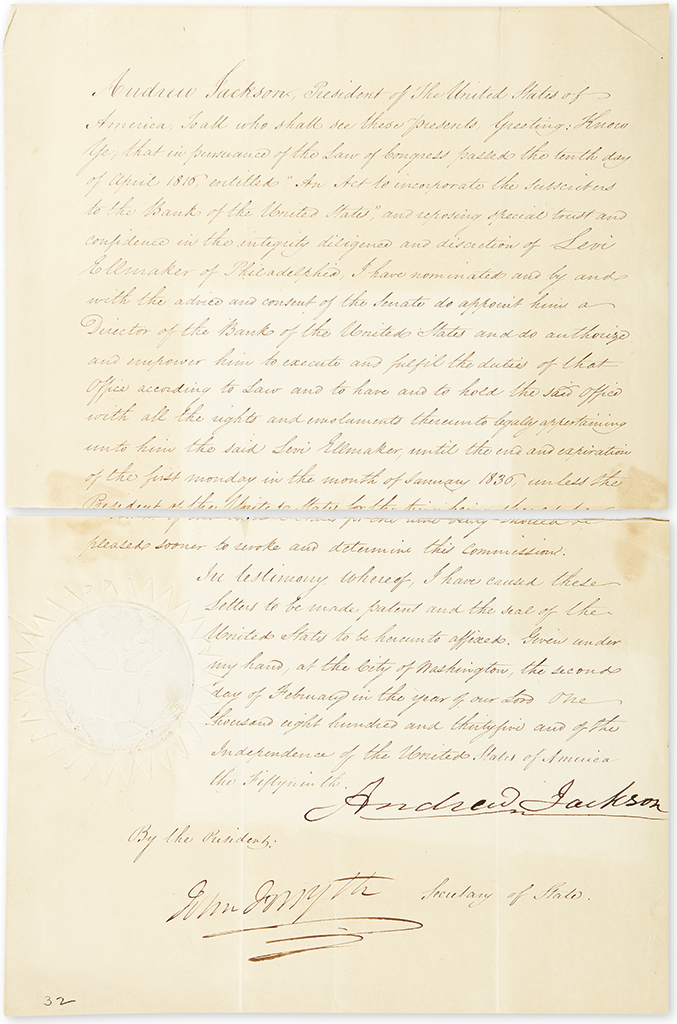 Andrew Jackson, President of The United States of
America, To all who shall see these presents, Greeting: Know
Ye, that in pursuance of the Law of Congress passed the tenth day
of April 1816, entitled "An Act to incorporate the subscribers
to the Bank of the United States," and reposing special trust and
confidence in the integrity diligence and discretion of Levi
Ellmaker of Philadelphia, I have nominated and by and
with the advice and consent of the Senate do appoint him a
Director of the Bank of the United States and do authorize
and empower him to execute and fulfil the duties of that
Office according to Law and to have and to hold the said Office
with all the rights and emoluments thereunto legally appertaining
unto him the said Levi Ellmaker, until the end and expiration
of the first monday in the month of January 1836, unless the
President of the United States for the time being should be
pleased sooner to revoke and determine this commission.
In testimony whereof, I have caused these
Letters to be made patent and the seal of the
United States to be hereunto affixed. Given under
my hand, at the City of Washington, the second
day of February in the year of our Lord One
thousand eight hundred and thirtyfive and of the
Independence of the United States of America
the Fiftyninth.
Andrew Jackson
By the President:
John Forsyth Secretary of State.
32